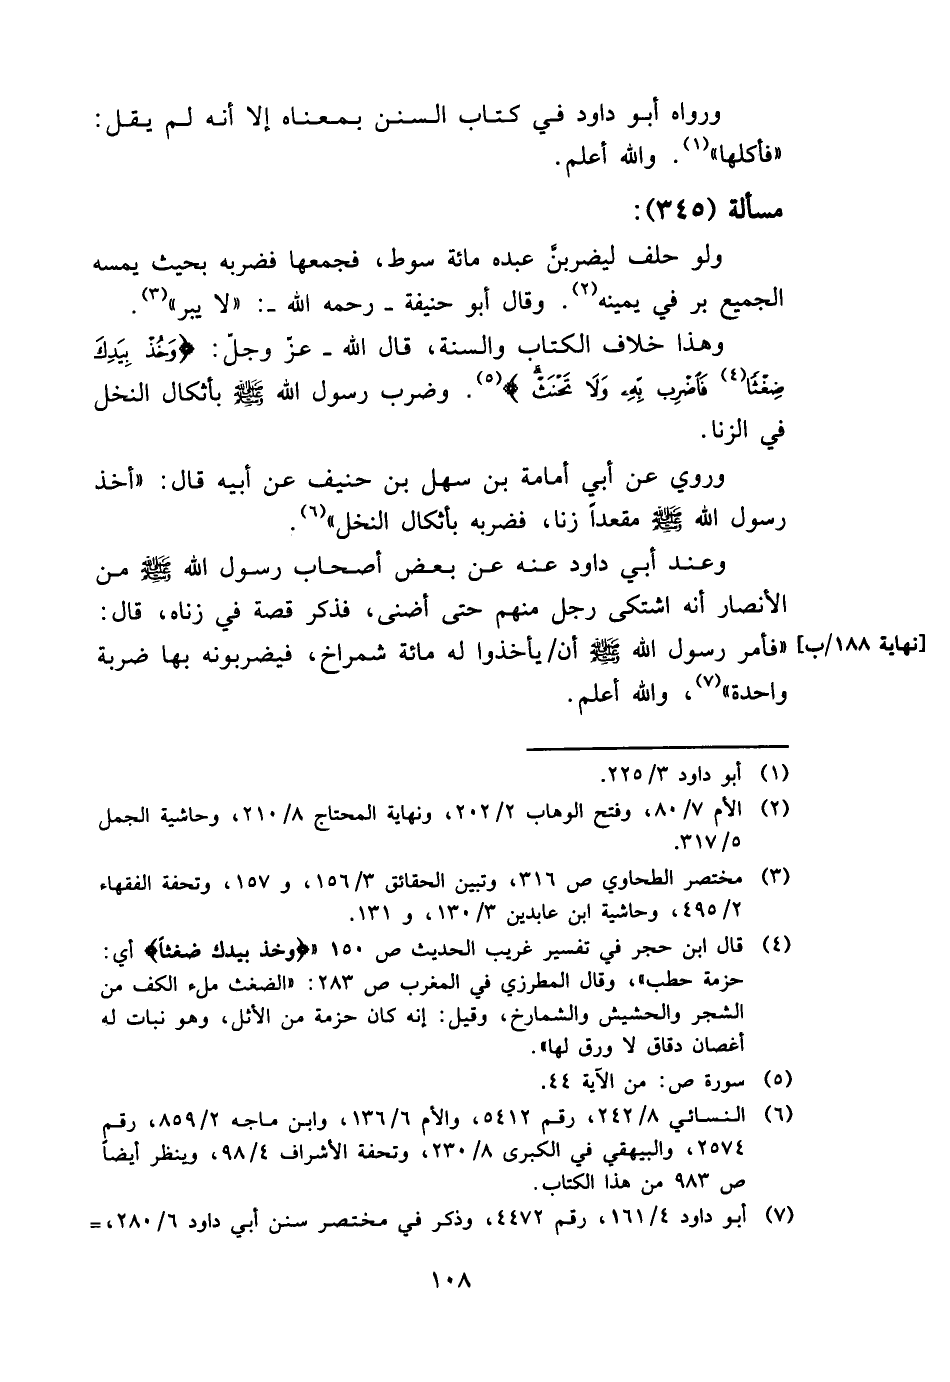 ورواه أبو داود في كتاب السنن بمعناه إلا أنه لم يقل:
«فأكلها»(١). والله أعلم.
مسألة (٣٤٥):
ولو حلف ليضربنَّ عبده مائة سوط، فجمعها فضربه بحيث يمسه
الجميع بر في يمينه(٢). وقال أبو حنيفة ـ رحمه الله ـ: «لا يبر»(٣).
وهذا خلاف الكتاب والسنة، قال الله ـ عزّ وجلّ: ﴿وَخُذْ بِيَدِكَ
ضِغْثًا(٤) فَاضْرِب بِّهِۦ وَلَا تَحْنَثْ ۗ﴾(٥). وضرب رسول الله ﷺ بأثكال النخل
في الزنا.
وروي عن أبي أمامة بن سهل بن حنيف عن أبيه قال: «أخذ
رسول الله ﷺ مقعداً زنا، فضربه بأثكال النخل»(٦).
وعند أبي داود عنه عن بعض أصحاب رسول الله ﷺ من
الأنصار أنه اشتكى رجل منهم حتى أضنى، فذكر قصة في زناه، قال:
«فأمر رسول الله ﷺ أن/يأخذوا له مائة شمراخ، فيضربونه بها ضربة [نهاية ١٨٨/ب]
واحدة»(٧)، والله أعلم.
(١) أبو داود ٢٢٥/٣.
(٢) الأم ٨٠/٧، وفتح الوهاب ٢٠٢/٢، ونهاية المحتاج ٢١٠/٨، وحاشية الجمل
٣١٧/٥.
(٣) مختصر الطحاوي ص ٣١٦، وتبين الحقائق ١٥٦/٣، و ١٥٧، وتحفة الفقهاء
٤٩٥/٢، وحاشية ابن عابدين ١٣٠/٣، و ١٣١.
(٤) قال ابن حجر في تفسير غريب الحديث ص ١٥٠ «﴿وخذ بيدك ضغثاً﴾ أي:
حزمة حطب»، وقال المطرزي في المغرب ص ٢٨٣: «الضغث ملء الكف من
الشجر والحشيش والشمارخ، وقيل: إنه كان حزمة من الأثل، وهو نبات له
أغصان دقاق لا ورق لها».
(٥) سورة ص: من الآية ٤٤.
(٦) النسائي ٢٤٢/٨، رقم ٥٤١٢، والأم ١٣٦/٦، وابن ماجه ٨٥٩/٢، رقم
٢٥٧٤، والبيهقي في الكبرى ٢٣٠/٨، وتحفة الأشراف ٩٨/٤، وينظر أيضاً
ص ٩٨٣ من هذا الكتاب.
(٧) أبو داود ١٦١/٤، رقم ٤٤٧٢، وذكر في مختصر سنن أبي داود ٢٨٠/٦، =
١٠٨